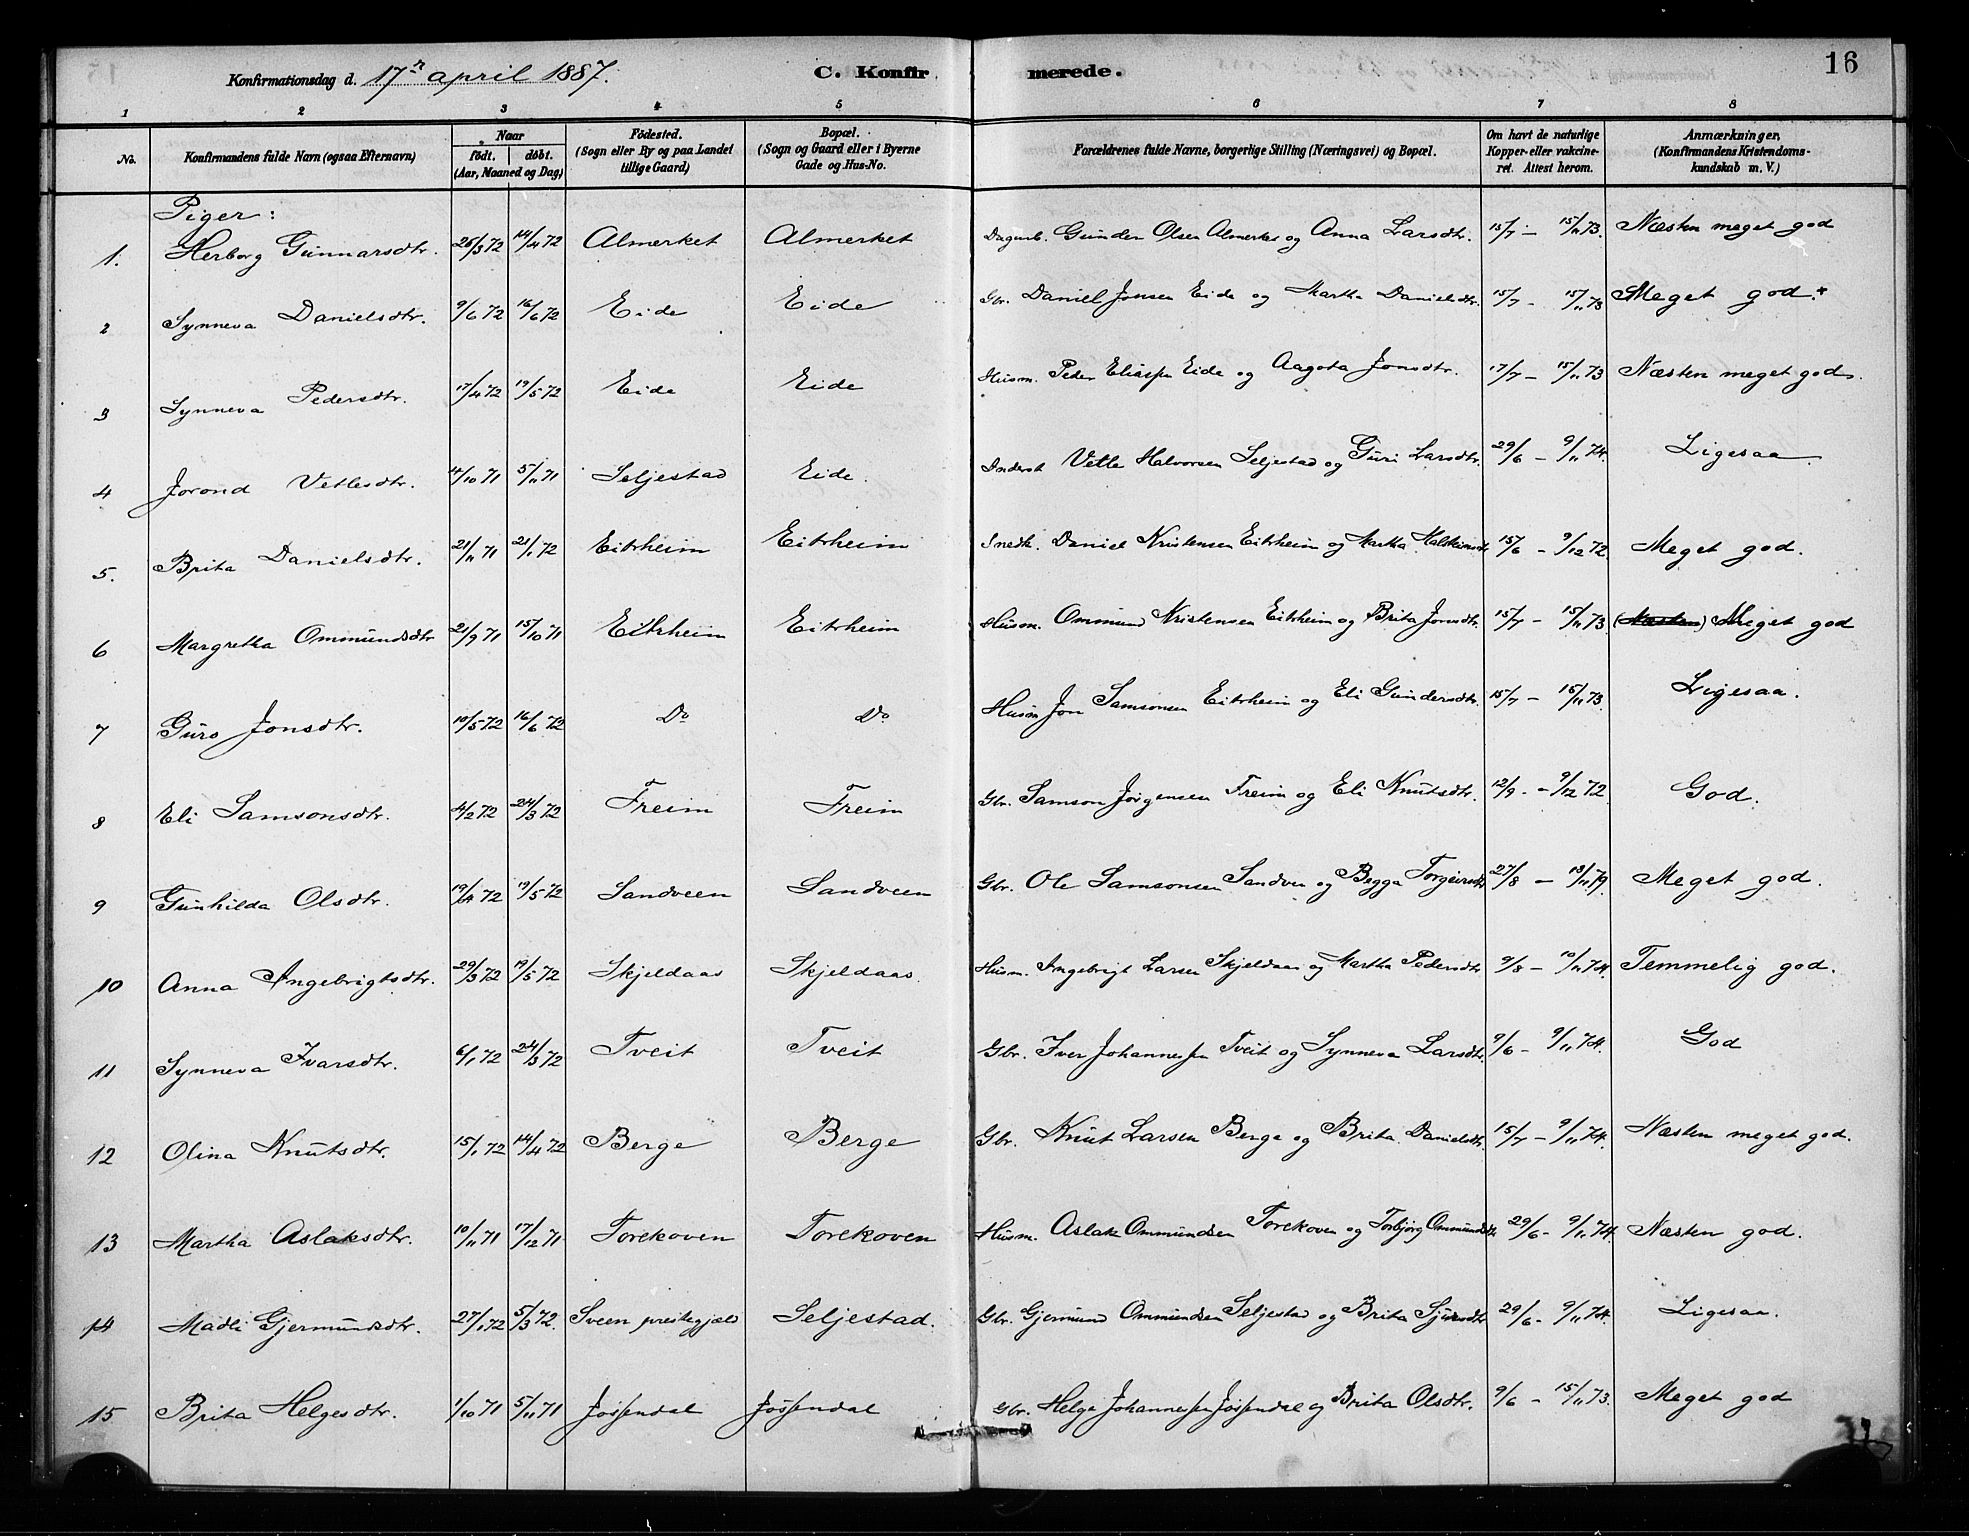 16
Konfirmationsdag d. 17de april 1887. C. Konfirmerede.
1 2 3 4 5 6 7 8
No. Konfirmandens fulde Navn (ogsaa Efternavn) Naar født. døbt. (Aar, Maaned og Dag) Födested. (Sogn eller By og paa Landet tillige Gaard) Bopæl. (Sogn og Gaard eller i Byerne Gade og Hus-No. Forældrenes fulde Navne, borgerlige Stilling (Næringsvei) og Bopæl. Om havt de naturlige Kopper eller vakcineret. Attest herom. Anmærkninger. (Konfirmandens Kristendomskundskab m. V.)
Piger:
1. Herborg Gunnarsdtr. 26/3 72 14/4 72 Almerket Almerket Dagarb. Gunder Olsen Almerket og Anna Larsdtr. 15/7 – 15/11 73. Næsten meget god
2 Synneva Danielsdtr. 9/6 72 16/6 72 Eide Eide Gbr. Daniel Jonsen Eide og Martha Danielsdtr. 15/7 – 15/11 73 Meget god.
3 Synneva Pedersdtr. 17/4 72 19/5 72 Eide Eide Husm. Peder Eliasen Eide og Aagota Jonsdtr. 17/7 – 15/11 73 Næsten meget god.
4 Jorond Vetlesdtr. 14/10 71 5/11 71 Seljestad Eide. Inderst Vetle Halvorsen Seljestad og Guri Larsdtr. 29/6 – 9/11 74. Ligesaa
5. Brita Danielsdtr. 21/11 71 21/1 72 Eitrheim Eitrheim Snedk. Daniel Kristensen Eitrheim og Martha 15/6 – 9/12 72 Meget god.
6 Margretha Ommundsdtr 21/9 71 15/10 71 Eitrheim Eitrheim Husm. Ommund Kristensen Eitrheim og Brita Jonsdtr. 15/7 – 15/11 73 (Næsten) Meget god
7 Guro Jonsdtr. 10/5 72 16/6 72 Do Do Husm Jon Samsonsen Eitrheim og Eli Gundersdtr. 15/7 – 15/11 73. Ligesaa.
8 Eli Samsonsdtr. 4/2 72 24/3 72 Freim Freim Gbr. Samson Jørgensen Freim og Eli Knutsdtr. 12/9 – 9/12 72. God.
9 Gunhilda Olsdtr. 19/4 72 19/5 72 Sandveen Sandveen Gbr. Ole Samsonsen Sandven og Bægga Torgeirsdtr 27/8 – 18/11 79. Meget god.
10 Anna Ingebrigtsdtr. 29/3 72 19/5 72 Skjeldaas Skjeldaas Husm. Ingebrigt Larsen Skjeldaas og Martha Pedersdtr 9/8 – 10/11 74. Temmelig god.
11 Synneva Ivarsdtr. 6/1 72 24/3 72 Tveit Tveit Gbr. Iver Johannessen Tveit og Synneva Larsdtr. 9/6 – 9/11 74. God
12 Olina Knutsdtr. 15/1 72 14/4 72 Berge Berge Gbr. Knut Larsen Berge og Brita Danielsdtr 15/7 – 9/11 74. Næsten meget god.
13 Martha Aslaksdtr. 10/11 71 17/12 71 Torekoven Torekoven Husm. Aslak Ommundsen Torekoven og Torbjørg Ommundsdtr. 29/6 – 9/11 74. Næsten god.
14 Madli Gjermundsdtr. 27/1 72 5/3 72. Sveen prestegjæld Seljestad. Gbr. Gjermund Ommundsen Seljestad og Brita Sjursdtr 29/6 – 9/11 74. Ligesaa.
15 Brita Helgesdtr. 1/10 71 5/11 71 Jøssendal Jøssendal Gbr. Helge Johannessen Jøssendal og Brita Olsdtr. 9/6 – 15/11 73. Meget god